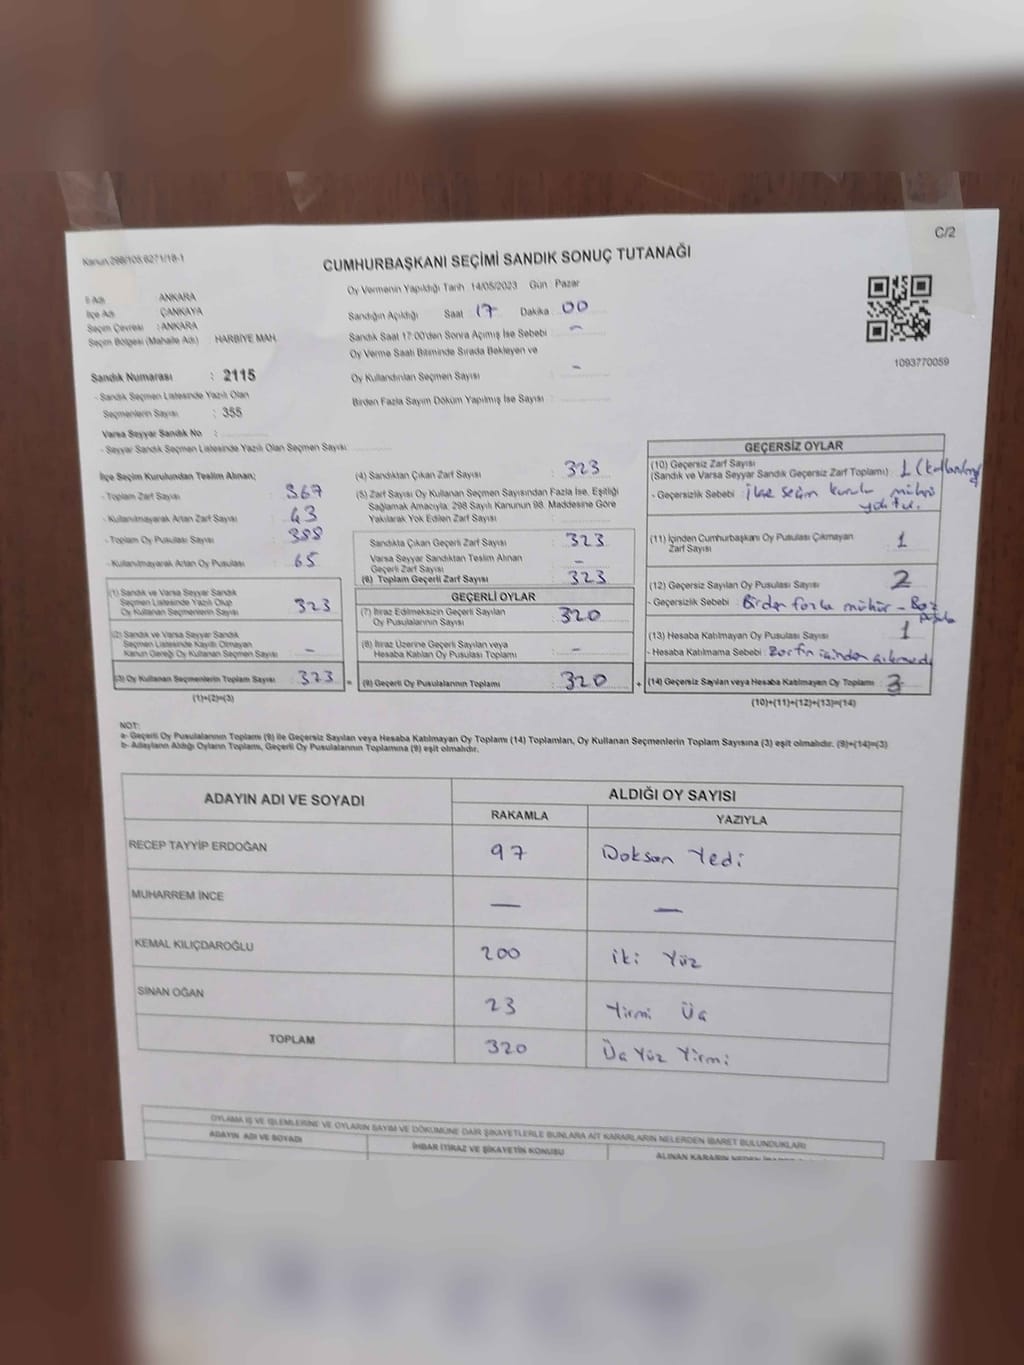 C/2
Kanun 298/105,6271/18-1
CUMHURBAŞKANI SEÇİMİ SANDIK SONUÇ TUTANAĞI
İl Adı : ANKARA
İlçe Adı : ÇANKAYA
Seçim Çevresi : ANKARA
Seçim Bölgesi (Mahalle Adı) HARBİYE MAH.
Sandık Numarası : 2115
- Sandık Seçmen Listesinde Yazılı Olan
Seçmenlerin Sayısı : 355
Varsa Seyyar Sandık No :
- Seyyar Sandık Seçmen Listesinde Yazılı Olan Seçmen Sayısı
Oy Vermenin Yapıldığı Tarih 14/05/2023 Gün : Pazar
Sandığın Açıldığı Saat 17 Dakika 00
Sandık Saat 17:00'den Sonra Açılmış İse Sebebi -
Oy Verme Saati Bitiminde Sırada Bekleyen ve
Oy Kullandırılan Seçmen Sayısı : -
Birden Fazla Sayım Döküm Yapılmış İse Sayısı :
1093770059
İlçe Seçim Kurulundan Teslim Alınan;
- Toplam Zarf Sayısı : 367
- Kullanılmayarak Artan Zarf Sayısı : 43
- Toplam Oy Pusulası Sayısı : 388
- Kullanılmayarak Artan Oy Pusulası : 65
(1) Sandık ve Varsa Seyyar Sandık
Seçmen Listesinde Yazılı Olup
Oy Kullanan Seçmenlerin Sayısı : 323
(2) Sandık ve Varsa Seyyar Sandık
Seçmen Listesinde Kayıtlı Olmayan
Kanun Gereği Oy Kullanan Seçmen Sayısı : -
(3) Oy Kullanan Seçmenlerin Toplam Sayısı : 323
(1)+(2)=(3)
(4) Sandıktan Çıkan Zarf Sayısı : 323
(5) Zarf Sayısı Oy Kullanan Seçmen Sayısından Fazla İse, Eşitliği
Sağlamak Amacıyla; 298 Sayılı Kanunun 98. Maddesine Göre
Yakılarak Yok Edilen Zarf Sayısı :
Sandıkta Çıkan Geçerli Zarf Sayısı : 323
Varsa Seyyar Sandıktan Teslim Alınan
Geçerli Zarf Sayısı : -
(6) Toplam Geçerli Zarf Sayısı : 323
GEÇERLİ OYLAR
(7) İtiraz Edilmeksizin Geçerli Sayılan
Oy Pusulalarının Sayısı : 320
(8) İtiraz Üzerine Geçerli Sayılan veya
Hesaba Katılan Oy Pusulası Toplamı : -
=
(9) Geçerli Oy Pusulalarının Toplamı : 320
+
GEÇERSİZ OYLAR
(10) Geçersiz Zarf Sayısı
(Sandık ve Varsa Seyyar Sandık Geçersiz Zarf Toplamı) : 1
- Geçersizlik Sebebi : İlçe seçim kurulu mührü
yoktu.
(11) İçinden Cumhurbaşkanı Oy Pusulası Çıkmayan
Zarf Sayısı : 1
(12) Geçersiz Sayılan Oy Pusulası Sayısı : 2
- Geçersizlik Sebebi : Birden fazla mühür - Boş
pusula
(13) Hesaba Katılmayan Oy Pusulası Sayısı : 1
- Hesaba Katılmama Sebebi : Zarfın içinden çıkmadı
(14) Geçersiz Sayılan veya Hesaba Katılmayan Oy Toplamı : 3
(10)+(11)+(12)+(13)=(14)
NOT:
a- Geçerli Oy Pusulalarının Toplamı (9) ile Geçersiz Sayılan veya Hesaba Katılmayan Oy Toplamı (14) Toplamları, Oy Kullanan Seçmenlerin Toplam Sayısına (3) eşit olmalıdır. (9)+(14)=(3)
b- Adayların Aldığı Oyların Toplamı, Geçerli Oy Pusulalarının Toplamına (9) eşit olmalıdır.
ADAYIN ADI VE SOYADI ALDIĞI OY SAYISI
RAKAMLA YAZIYLA
RECEP TAYYİP ERDOĞAN 97 Doksan Yedi
MUHARREM İNCE — —
KEMAL KILIÇDAROĞLU 200 İki Yüz
SİNAN OĞAN 23 Yirmi Üç
TOPLAM 320 Üç Yüz Yirmi
OYLAMA İŞ VE İŞLEMLERİNE VE OYLARIN SAYIM VE DÖKÜMÜNE DAİR ŞİKAYETLERLE BUNLARA AİT KARARLARIN NELERDEN İBARET BULUNDUKLARI
ADAYIN ADI VE SOYADI İHBAR İTİRAZ VE ŞİKAYETİN KONUSU ALINAN KARARIN NEDEN